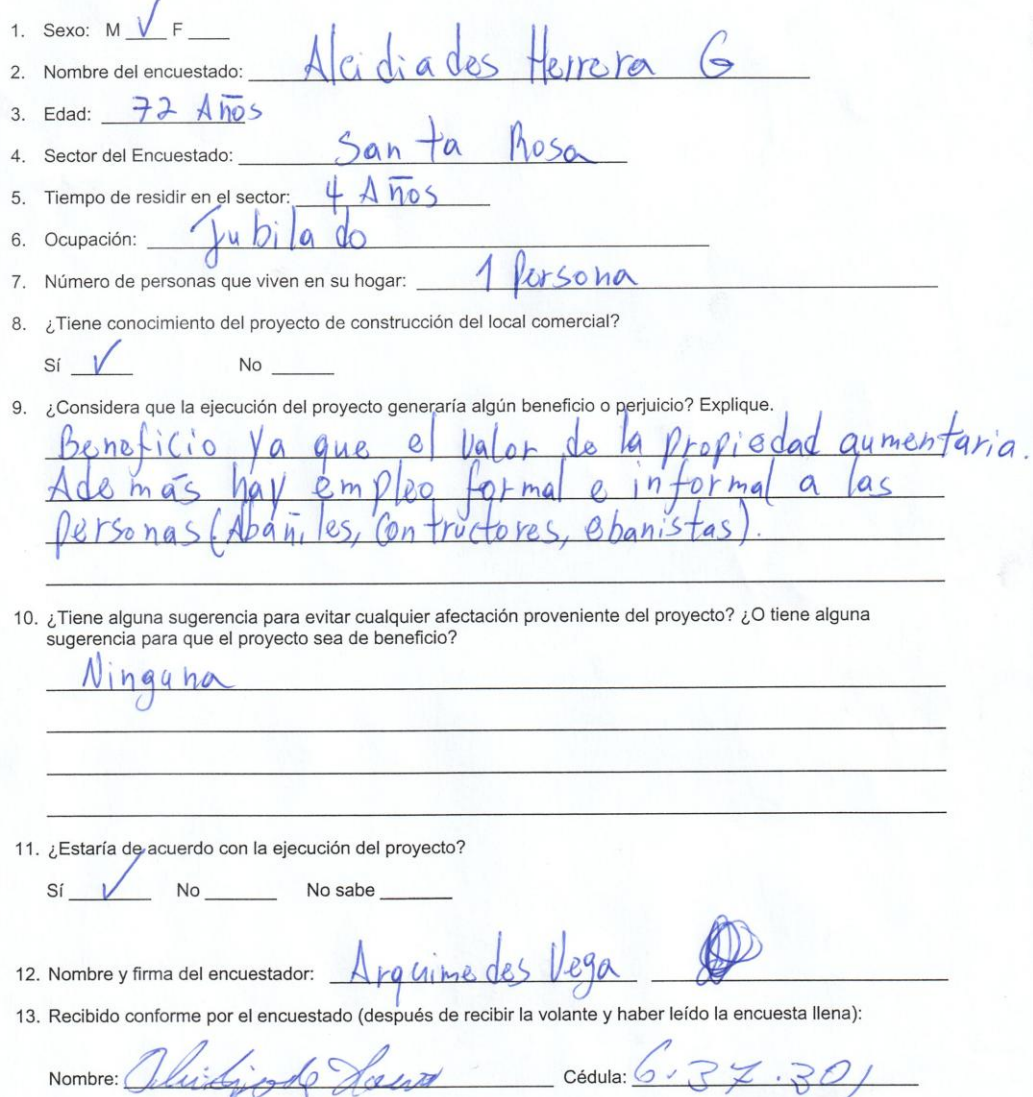 1. Sexo: M √ F
2. Nombre del encuestado: Alcidiades Herrera G
3. Edad: 72 Años
4. Sector del Encuestado: Santa Rosa
5. Tiempo de residir en el sector: 4 Años
6. Ocupación: Jubilado
7. Número de personas que viven en su hogar: 1 Persona
8. ¿Tiene conocimiento del proyecto de construcción del local comercial?
Sí √ No
9. ¿Considera que la ejecución del proyecto generaría algún beneficio o perjuicio? Explique.
Beneficio ya que el valor de la propiedad aumentaria.
Además hay empleo formal e informal a las
personas (Abañiles, Contructores, ebanistas).
10. ¿Tiene alguna sugerencia para evitar cualquier afectación proveniente del proyecto? ¿O tiene alguna
sugerencia para que el proyecto sea de beneficio?
Ninguna
11. ¿Estaría de acuerdo con la ejecución del proyecto?
Sí √ No No sabe
12. Nombre y firma del encuestador: Arquimedes Vega
13. Recibido conforme por el encuestado (después de recibir la volante y haber leído la encuesta llena):
Nombre: Cédula: 6.37.301